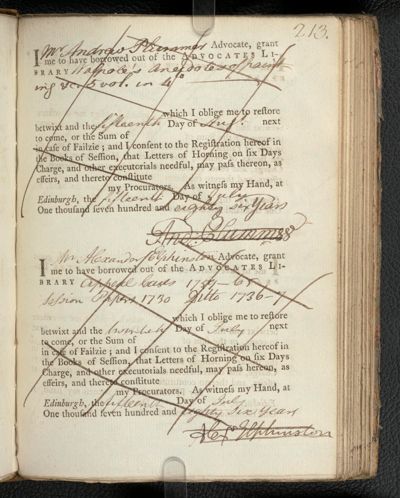 213.
I Mr Andrew Plummer Advocate, grant
me to have borrowed out of the ADVOCATES LI-
BRARY Walpole's Anecdotes of paint
ing &c. 5 vol. in 4o
which I oblige me to restore
betwixt and the fifteenth Day of Augt. next
to come, or the Sum of
in case of Failzie; and I consent to the Registration hereof in
the Books of Session, that Letters of Horning on six Days
Charge, and other executorials needful, may pass thereon, as
effeirs, and thereto constitute
my Procurators. As witness my Hand, at
Edinburgh, the fifteenth Day of July
One thousand seven hundred and eighty six Years
And. Plummer
I Mr Alexander Elphinston Advocate, grant
me to have borrowed out of the ADVOCATES LI-
BRARY Appeal Cases 1757-65
Session Papers 1730 Ditto 1736-7
which I oblige me to restore
betwixt and the twentieth Day of July next
to come, or the Sum of
in case of Failzie; and I consent to the Registration hereof in
the Books of Session, that Letters of Horning on six Days
Charge, and other executorials needful, may pass hereon, as
effeirs, and thereto constitute
my Procurators. As witness my Hand, at
Edinburgh, the fifteenth Day of July
One thousand seven hundred and Eighty Six Years
Alexr Elphinston